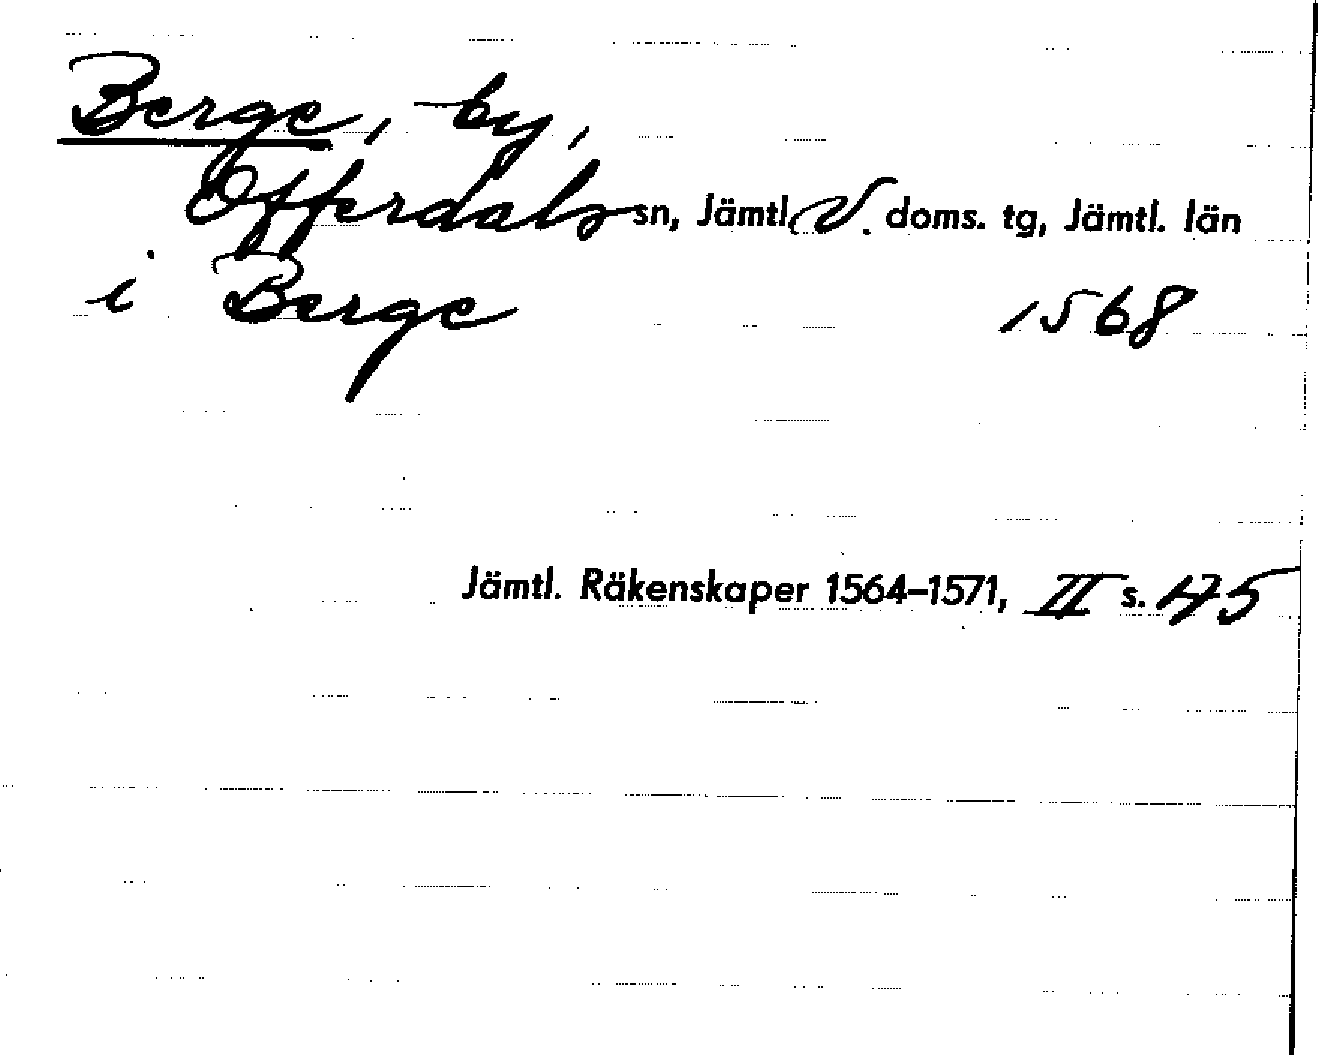 Berge, by,
Offerdals sn, Jämtl. V. doms. tg, Jämtl. län
i Berge 1568
Jämtl. Räkenskaper 1564–1571, II s. 45